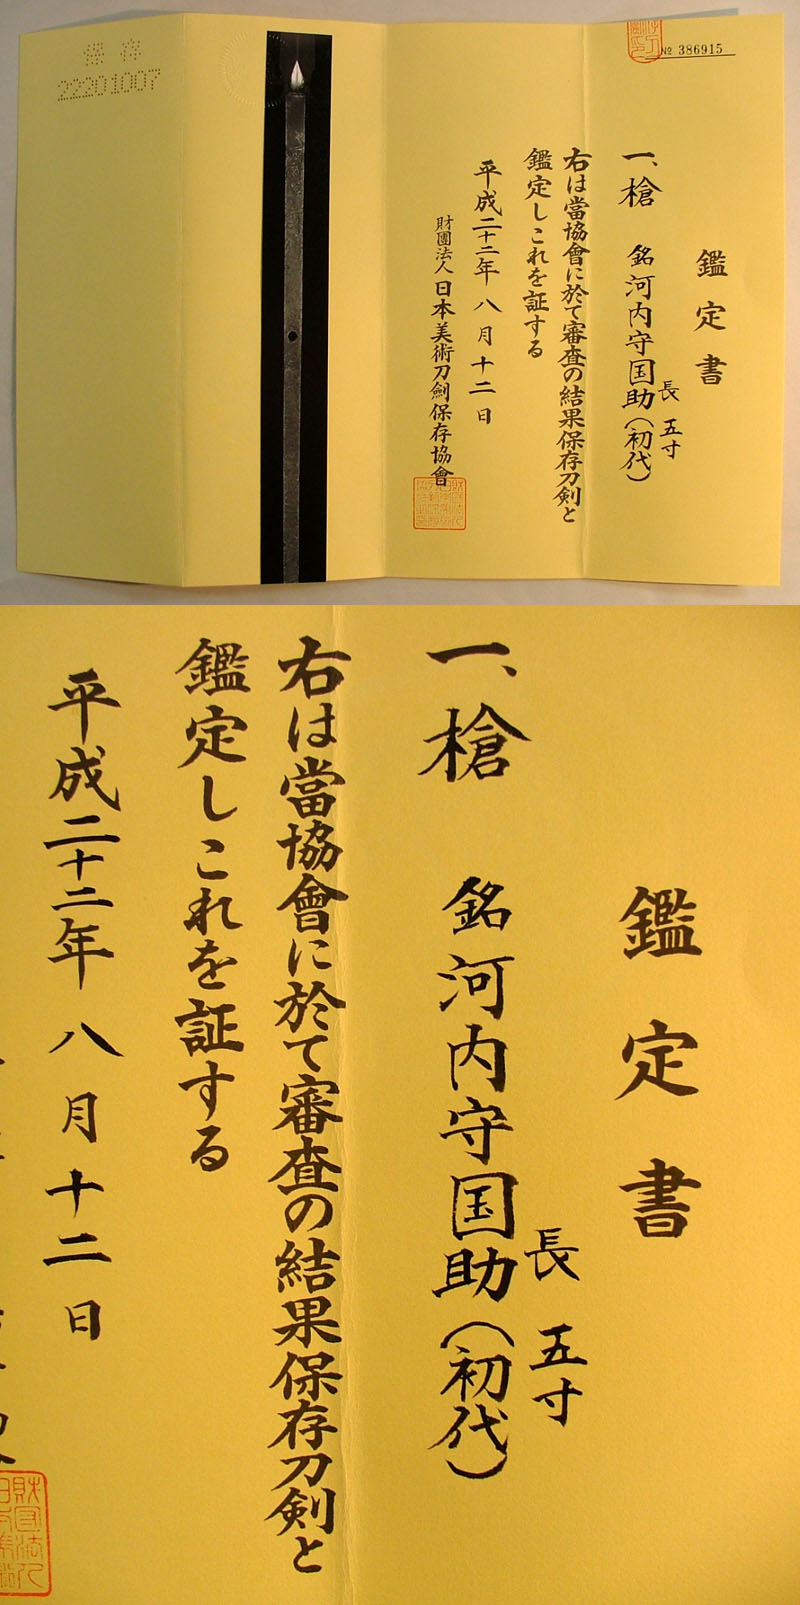 保存
22201007
№ 386915
鑑定書
一、槍 銘 河内守国助(初代)
長 五寸
右は當協會に於て審査の結果保存刀剣と
鑑定しこれを証する
平成二十二年 八月 十二日
財團法人 日本美術刀劍保存協會
鑑定書
一、槍 銘 河内守国助(初代)
長 五寸
右は當協會に於て審査の結果保存刀剣と
鑑定しこれを証する
平成二十二年 八月 十二日